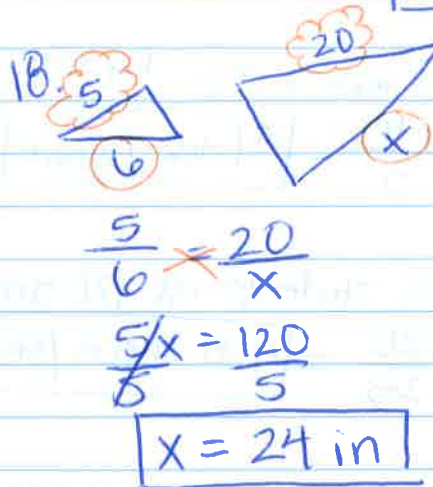 18. 5 20
6 x
5/6 = 20/x
5x/5 = 120/5
x = 24 in